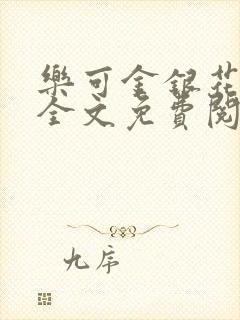 樂可金銀花
全文免費閱
九序